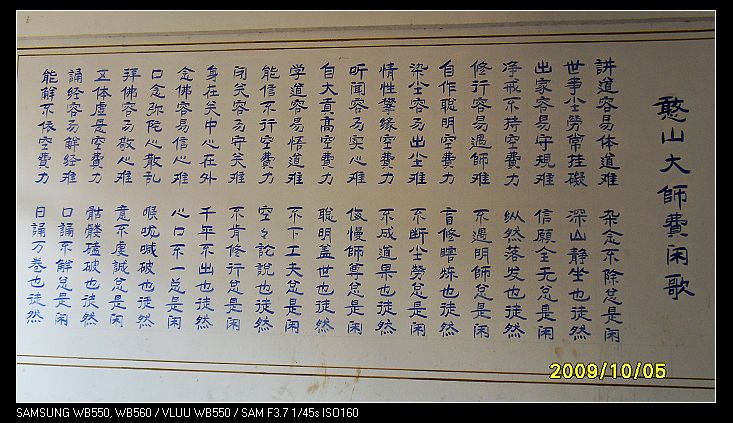 憨山大師費闲歌
讲道容易体道难 杂念不除总是闲
世事尘劳常挂碍 深山静坐也徒然
出家容易守规难 信愿全无总是闲
净戒不持空费力 纵然落发也徒然
修行容易遇师难 不遇明师总是闲
自作聪明空费力 盲修瞎炼也徒然
染尘容易出尘难 不断尘劳总是闲
情性攀缘空费力 不成道果也徒然
听闻容易实心难 侮慢师尊总是闲
自大贡高空费力 聪明盖世也徒然
学道容易悟道难 不下工夫总是闲
能信不行空费力 空々论说也徒然
闭关容易守关难 不肯修行总是闲
身在关中心在外 千年不出也徒然
念佛容易信心难 心口不一总是闲
口念弥陀心散乱 喉咙喊破也徒然
拜佛容易敬心难 意不虔诚总是闲
五体虚悬空费力 骷髅磕破也徒然
诵经容易解经难 口诵不解总是闲
能解不依空费力 日诵万卷也徒然
2009/10/05
SAMSUNG WB550, WB560 / VLUU WB550 / SAM F3.7 1/45s ISO160